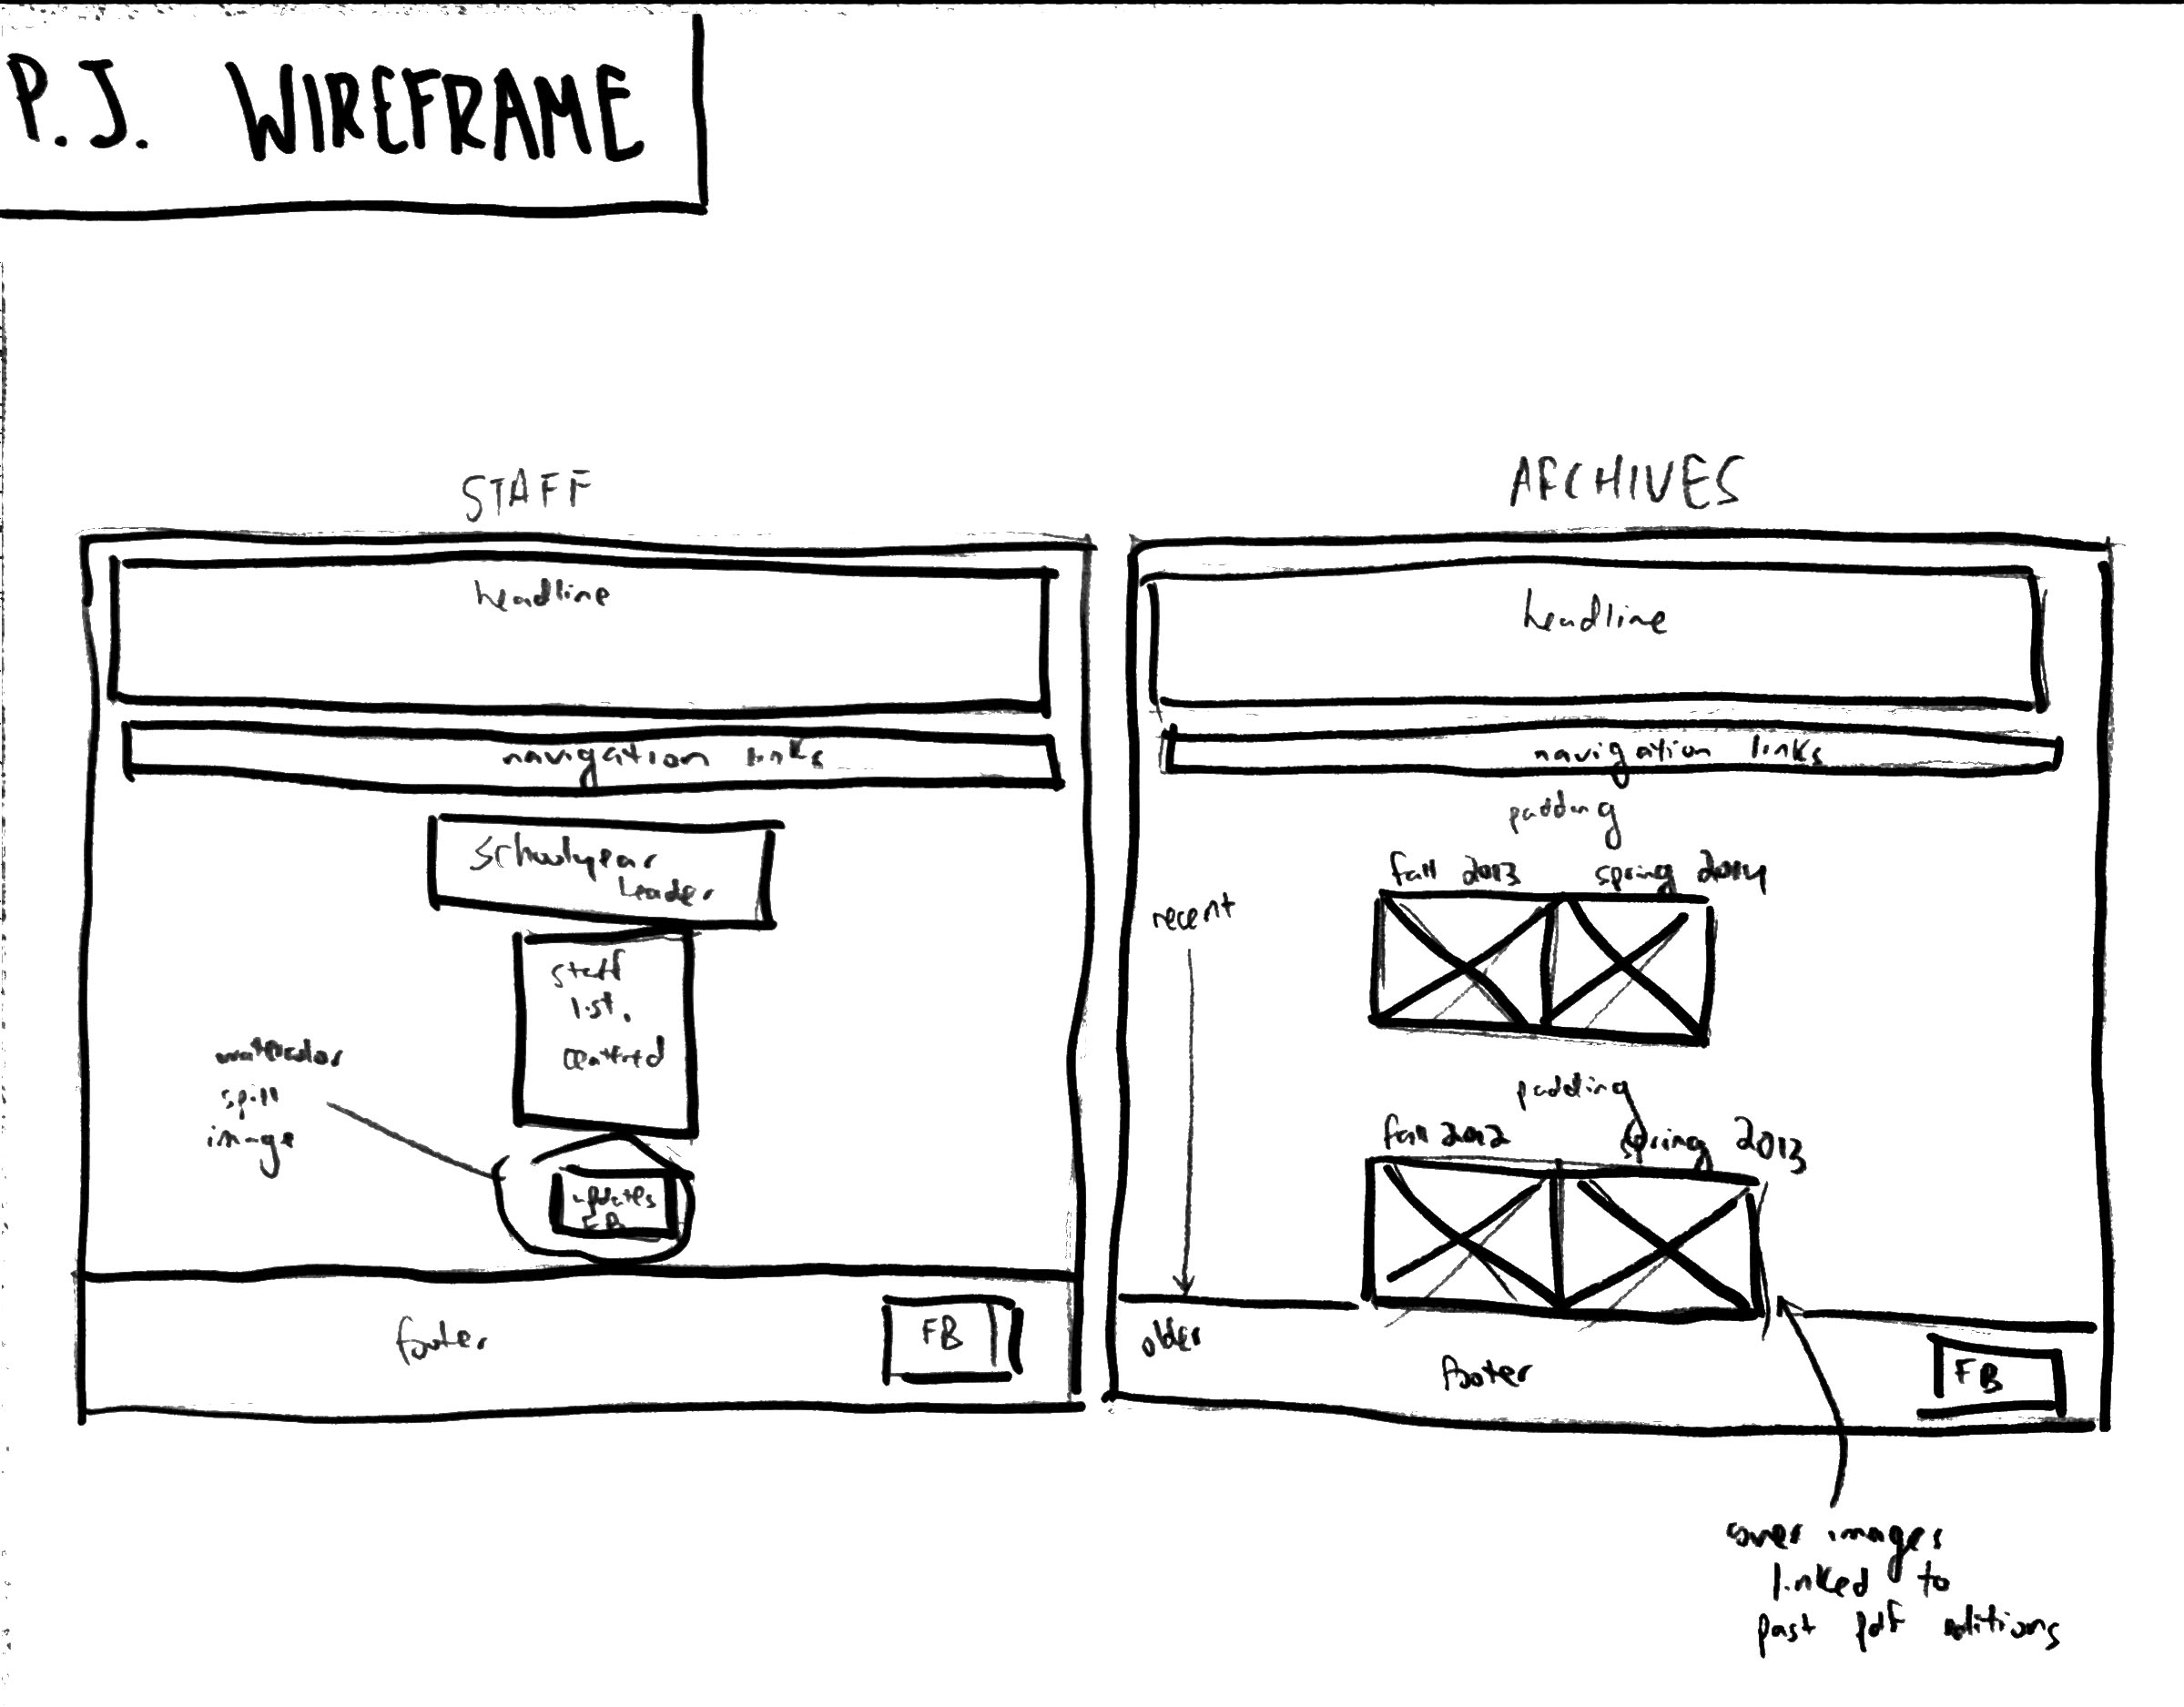 P.J. WIREFRAME
STAFF
headline
navigation links
Schoolyear
Leader
staff
list.
centred
watercolor
spill
image
updates
FB
footer
FB
ARCHIVES
headline
navigation links
padding
fall 2013 spring 2014
recent
padding
fall 2012 spring 2013
older
footer
FB
cover images
linked to
past pdf editions